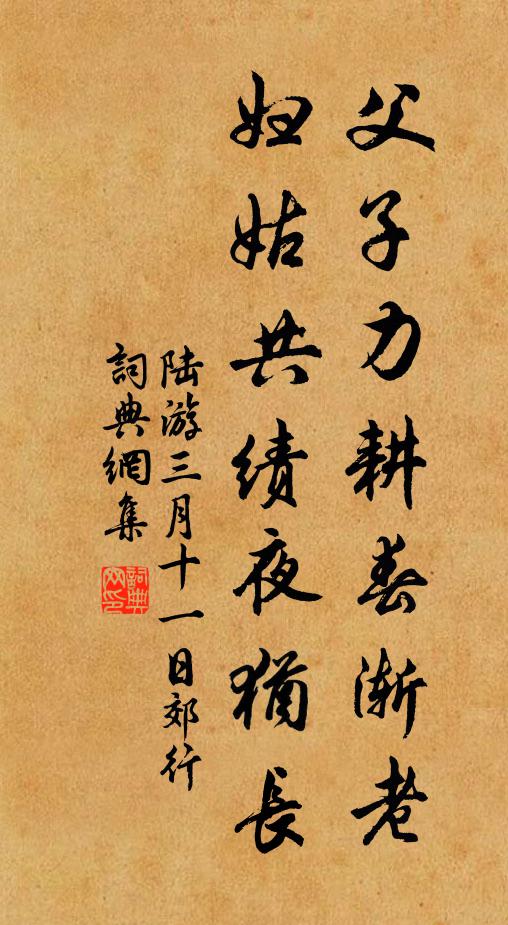 父子力耕春漸老
妇姑共績夜猶長
陆游三月十一日郊行
詞典網集
詞典网印